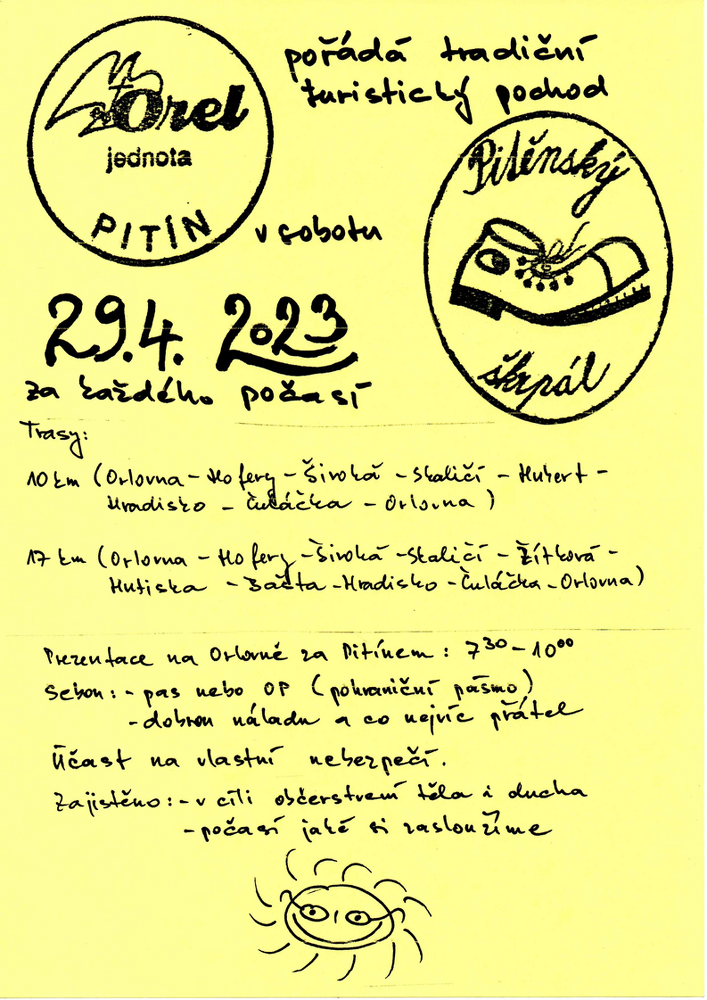 pořádá tradiční
turistický pochod
Orel
jednota
PITÍN
Pitěnský
škrpál
v sobotu
29.4. 2023
za každého počasí
Trasy:
10 km (Orlovna - Hofery - Široká - Skaličí - Hubert -
Hradisko - Čuláčka - Orlovna)
17 km (Orlovna - Hofery - Široká - Skaličí - Žítková -
Hutiska - Bašta - Hradisko - Čuláčka - Orlovna)
Prezentace na Orlovně za Pitínem: 7³⁰ - 10⁰⁰
Sebou: - pas nebo OP (pohraniční pásmo)
- dobrou náladu a co nejvíc přátel
Účast na vlastní nebezpečí.
Zajistěno: - v cíli občerstvení těla i ducha
- počasí jaké si zasloužíme